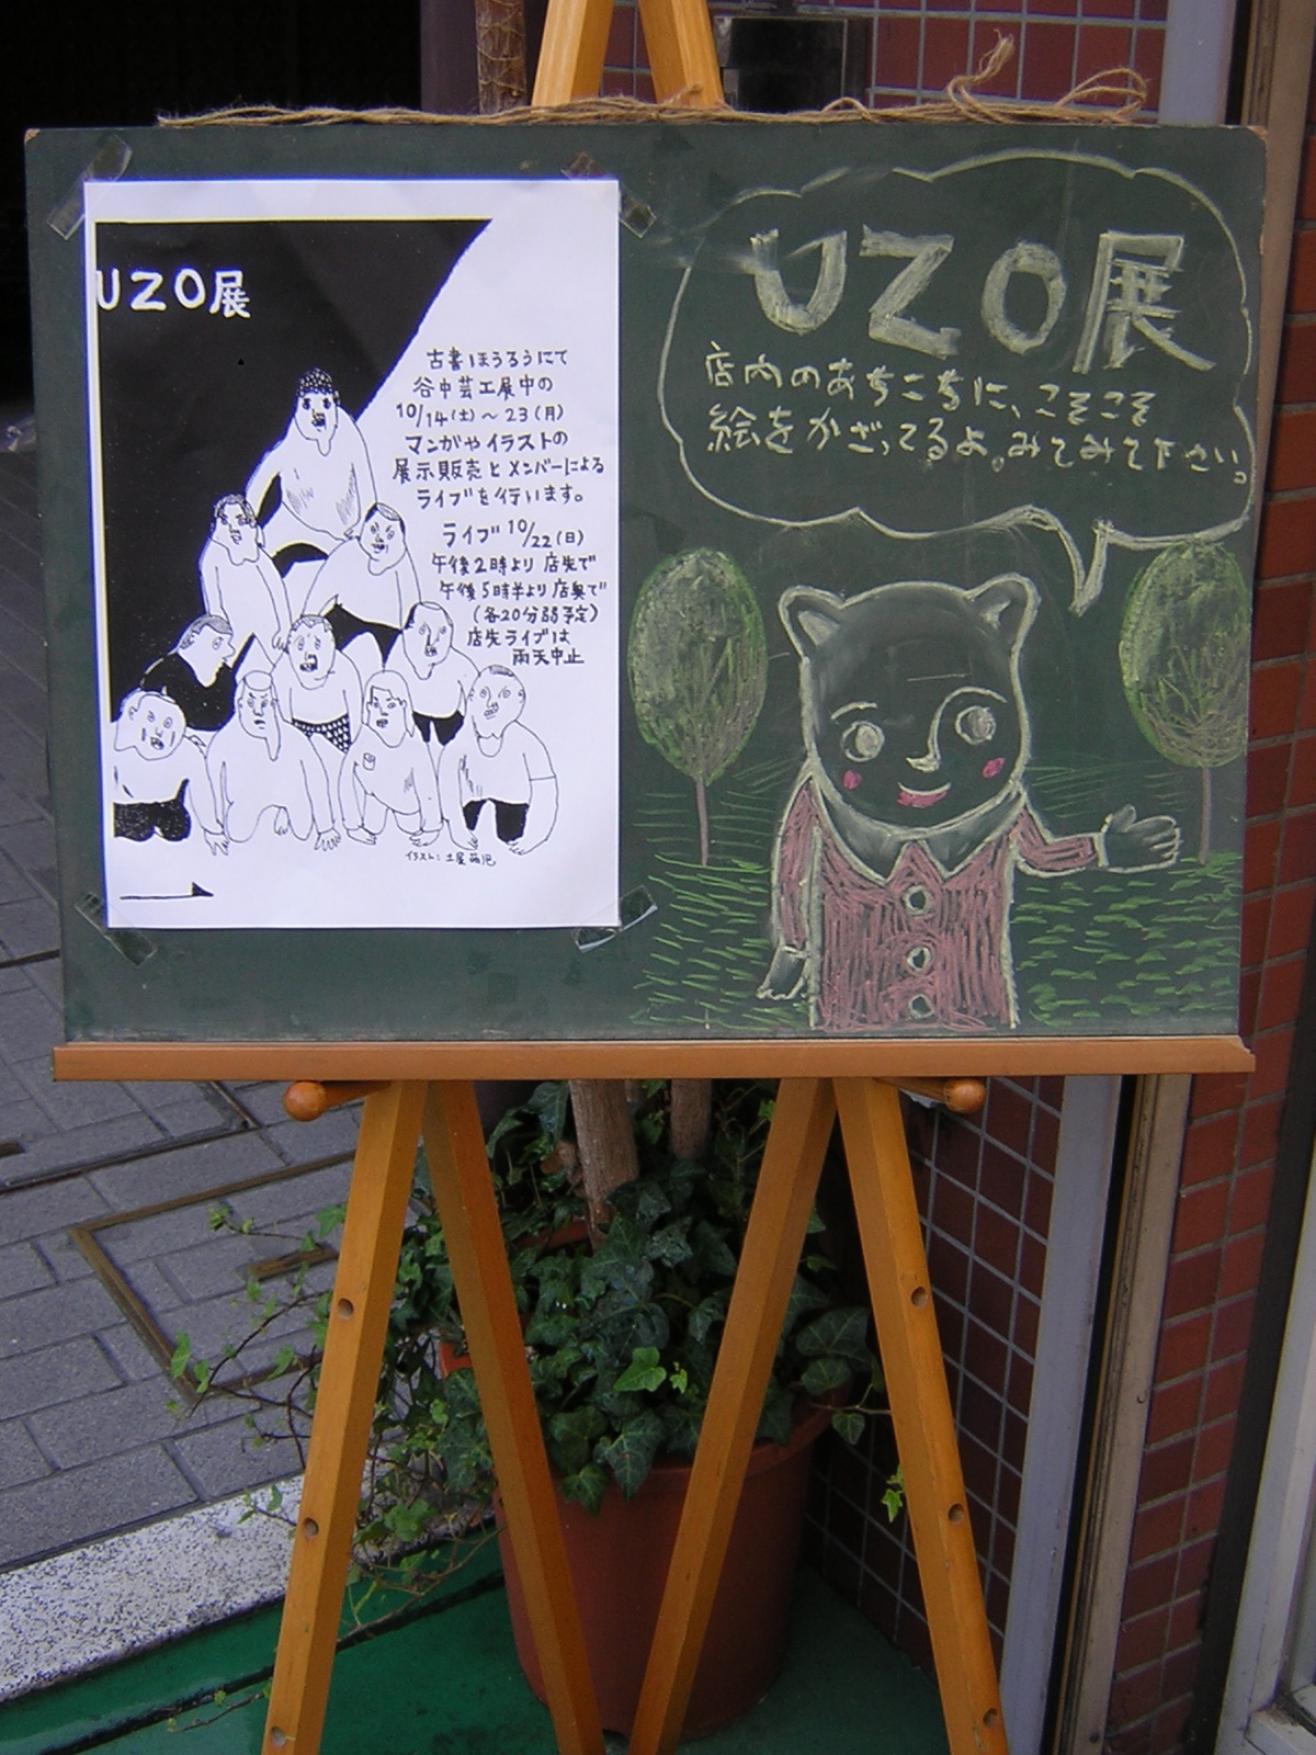 UZO展
古書ほうろうにて
谷中芸工展中の
10/14(土)～23(月)
マンガやイラストの
展示販売とメンバーによる
ライブを行います。
ライブ 10/22(日)
午後2時より 店先で
午後5時半より 店奥で
(各20分弱予定)
店先ライブは
雨天中止
イラスト:土屋
UZO展
店内のあちこちに、こそこそ
絵をかざってるよ。みてみて下さい。